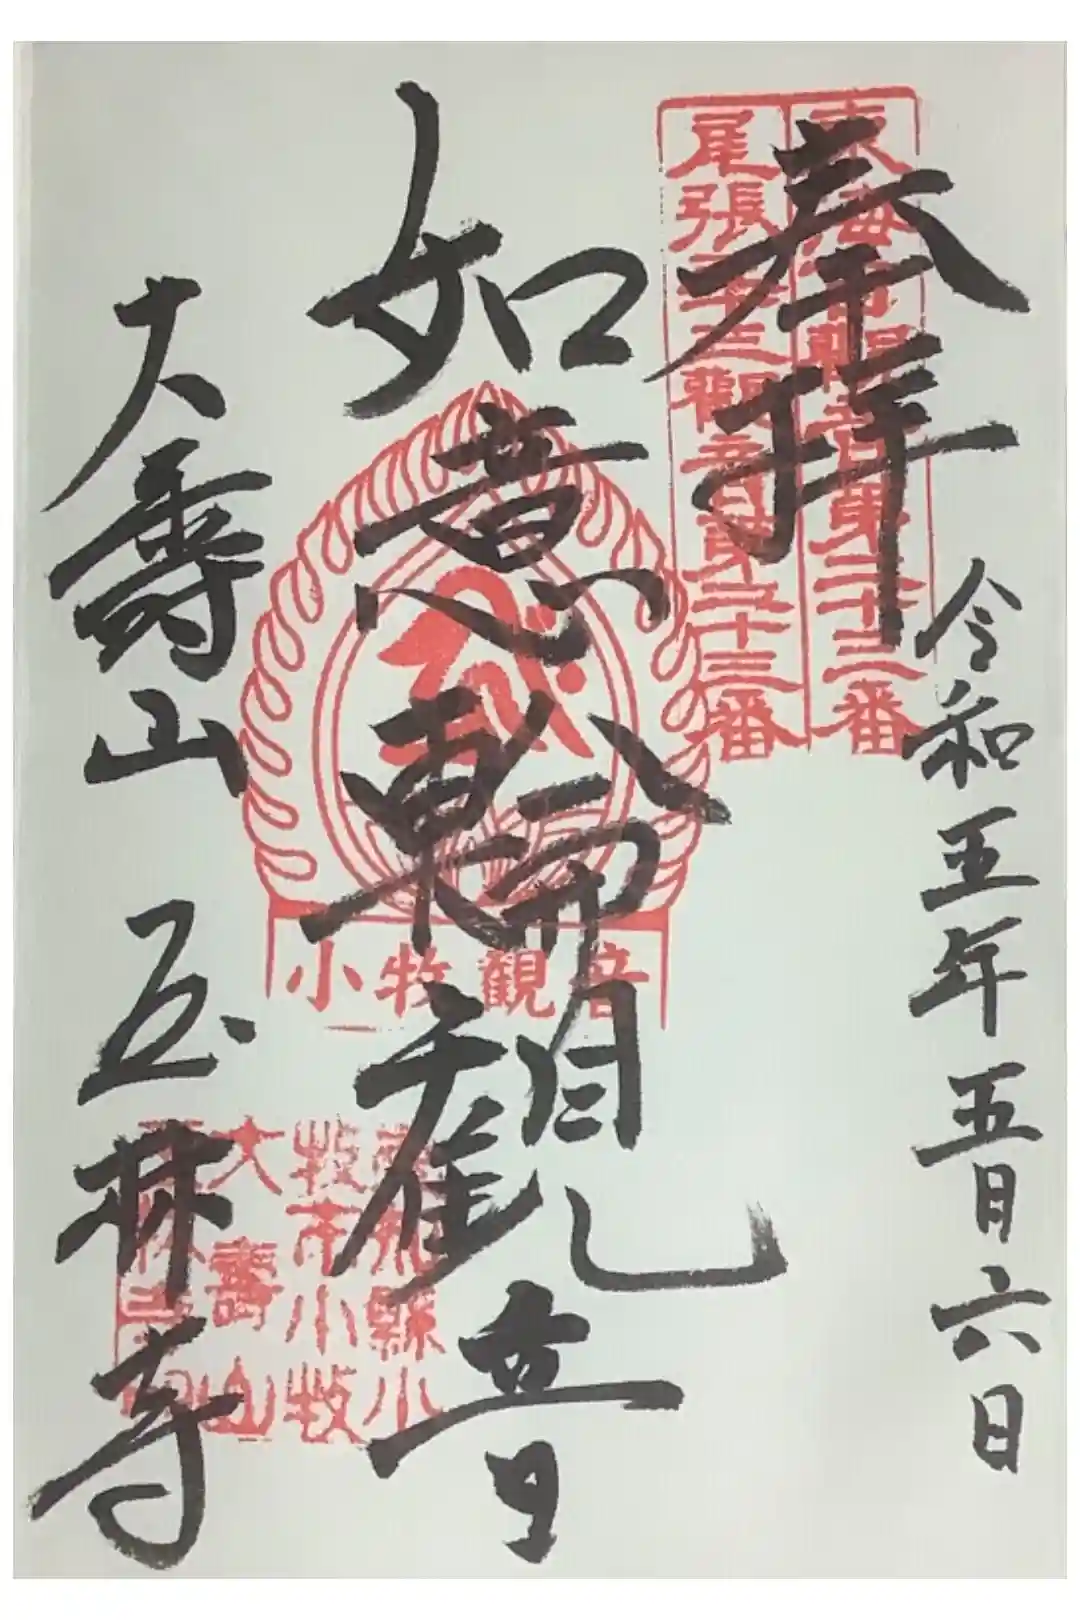 奉拝
令和五年五月六日
東海百観音第三十三番
尾張三十三観音第三十三番
如意輪観音
小牧観音
大壽山 玉林寺
愛知縣小
牧市小牧
大壽山
玉林寺印